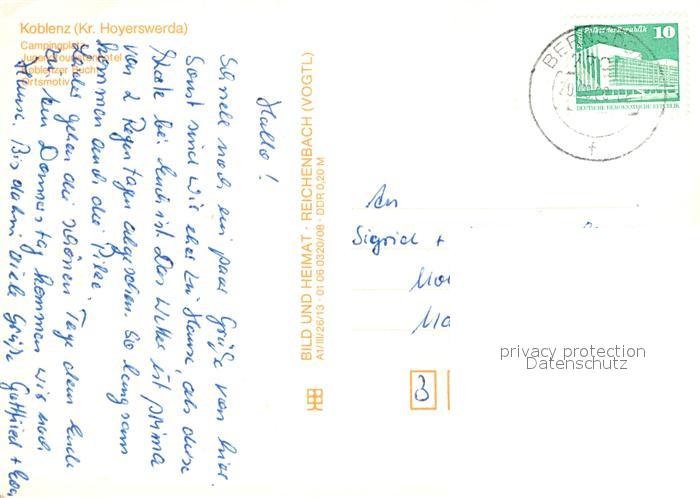 Koblenz (Kr. Hoyerswerda)
Campingplatz
Jugendtouristenhotel
Koblenzer Buch
Ortsmotiv
Hallo!
Schnell noch ein paar Grüße von hier.
Sonst sind wir eher zu Hause, als diese
Karte bei Euch ist. Das Wetter ist prima
von 2 Regentagen abgesehen. So langsam
kommen auch die Pilze.
Leider gehen die schönen Tage dem Ende
zu. Am Donnerstag kommen wir nach
Hause. Bis dahin viele Grüße Gottfried +
BILD UND HEIMAT · REICHENBACH (VOGTL)
A1/III/26/13 · 01 06 0320/08 · DDR 0,20 M
Palast der Republik 10
DEUTSCHE DEMOKRATISCHE REPUBLIK
f
An
Sigrid +
privacy protection
Datenschutz